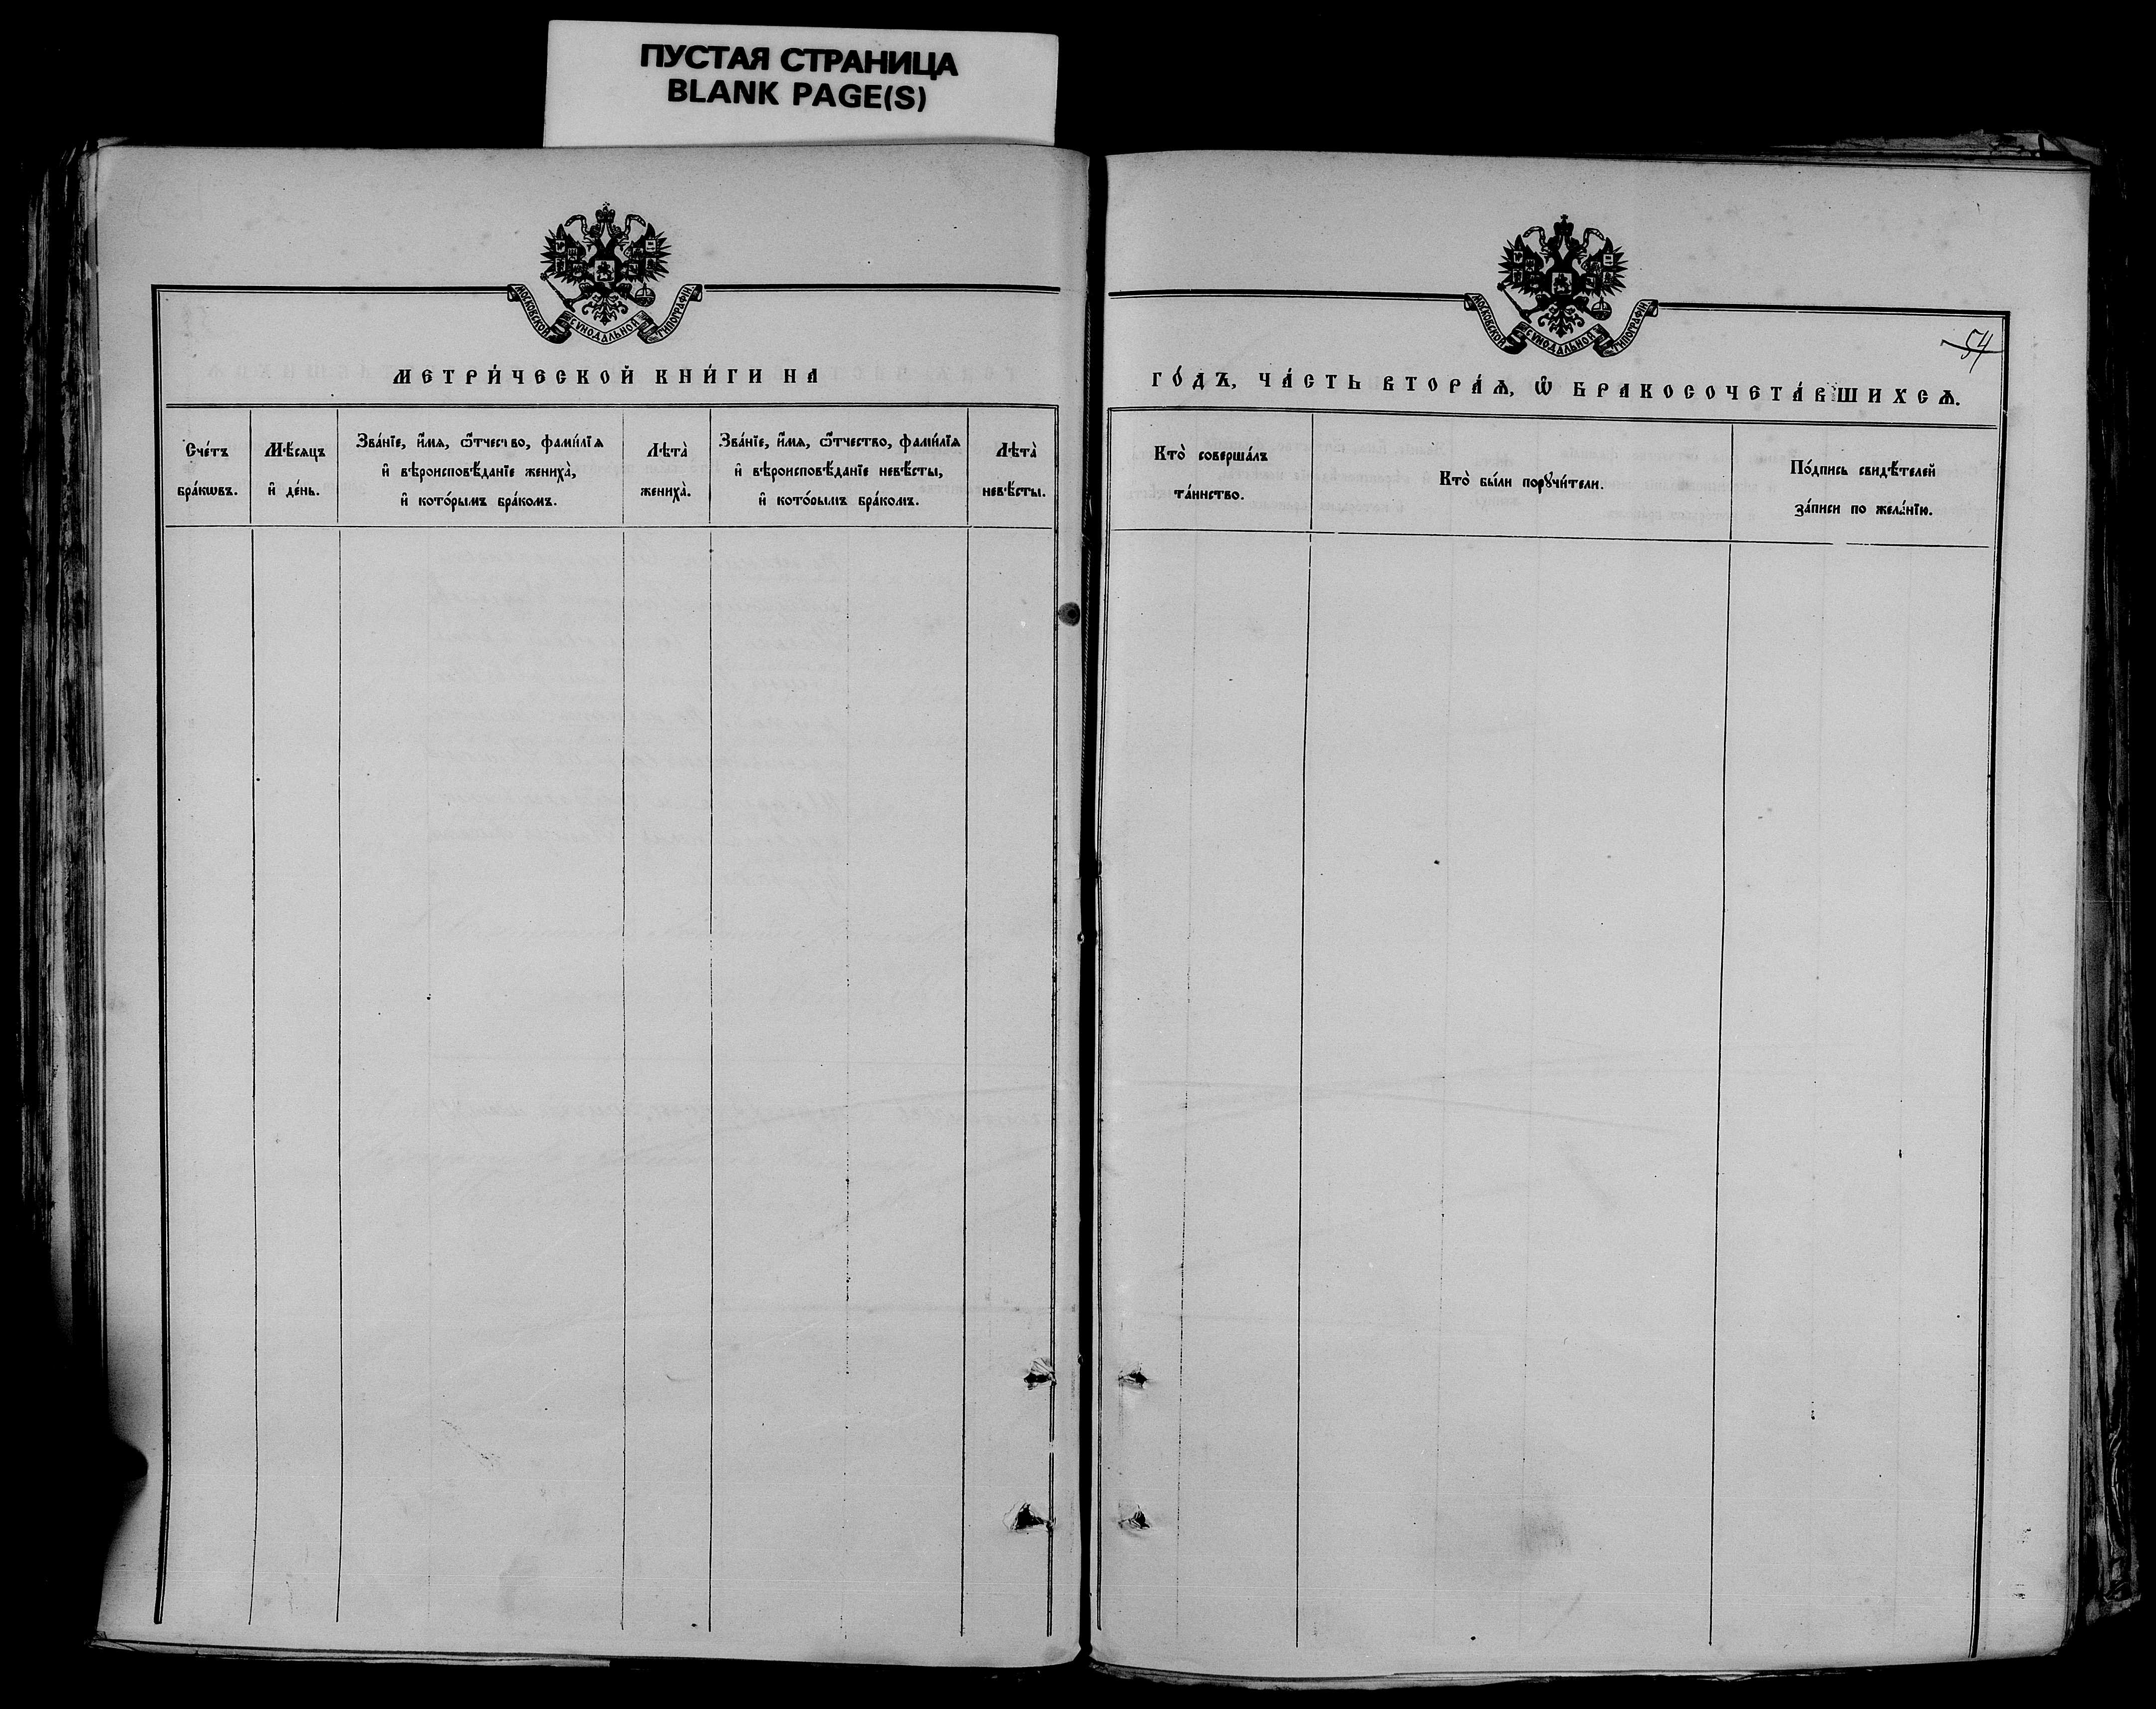 ПУСТАЯ СТРАНИЦА
BLANK PAGE(S)
МОСКОВСКОЙ СѴНОДАЛЬНОЙ ТИПОГРАФІИ
МЕТРИ́ЧЕСКОЙ КНИ́ГИ НА
Сче́тъ бра́кѡвъ.
Мѣ́сяцъ и҆ де́нь.
Зва́нїе, и҆́мѧ, ѻ҆́тчество, фами́лїѧ
и҆ вѣроисповѣ́данїе жениха̀,
и҆ кото́рымъ бра́комъ.
Лѣта̀ жениха̀.
Зва́нїе, и҆́мѧ, ѻ҆́тчество, фами́лїѧ
и҆ вѣроисповѣ́данїе невѣ́сты,
и҆ кото́рымъ бра́комъ.
Лѣта̀ невѣ́сты.
МОСКОВСКОЙ СѴНОДАЛЬНОЙ ТИПОГРАФІИ
54
ГО́ДЪ, ЧА́СТЬ ВТОРА́Ѧ, Ѽ БРАКОСОЧЕТА́ВШИХСѦ.
Кто̀ соверша́лъ
та́инство.
Кто̀ бы́ли порꙋчи́тели.
По́дпись свидѣ́телей
за́писи по жела́нїю.